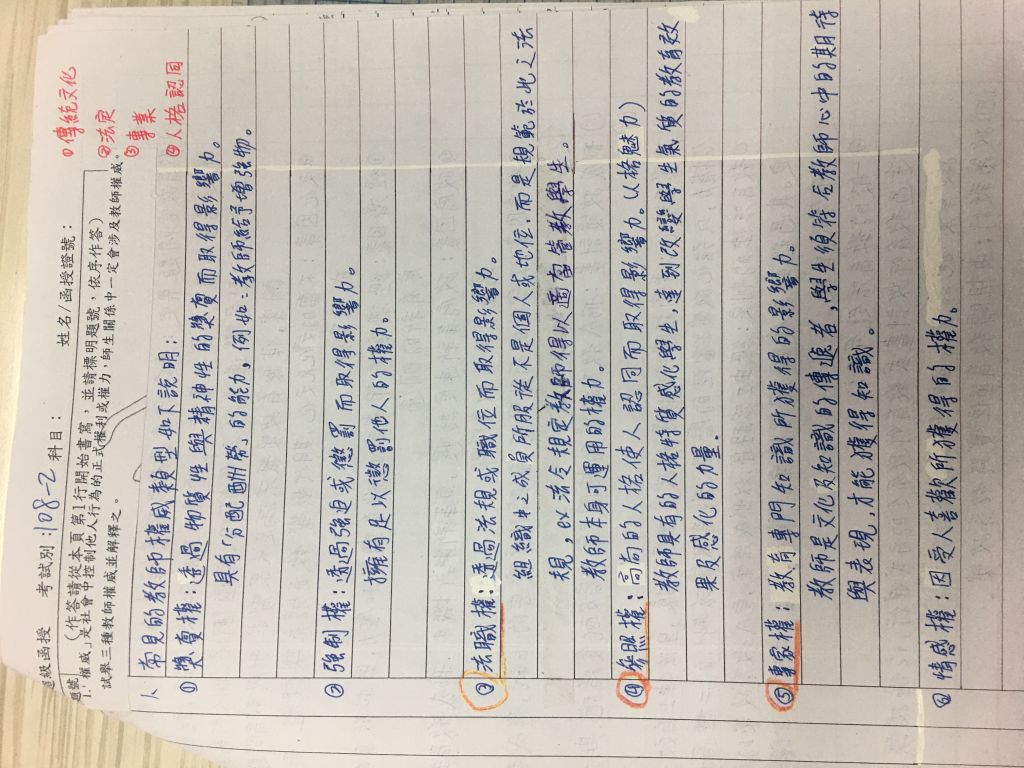 級函授 考試別：108-2 科目： 姓名/函授證號：
題號 (作答請從本頁第1行開始書寫，並請標明題號，依序作答)
1. 權威」是社會中控制他人行為的正式權利或權力，師生關係中一定會涉及教師權威。
試舉三種教師權威並解釋之。
①傳統文化
②法定
③專業
④人格認同
1、常見的教師權威類型如下說明：
① 獎賞權：透過物質性與精神性的獎賞而取得影響力。
具有「分配酬勞」的能力，例如：教師給予增強物。
② 強制權：透過強迫或懲罰而取得影響力。
擁有足以懲罰他人的權力。
③ 法職權：透過法規或職位而取得影響力。
組織中之成員所服從不是個人或地位，而是規範於此之法
規，ex 法令規定教師得以適當管教學生。
教師本身可運用的權力。
④ 參照權：高尚的人格使人認同而取得影響力。(人格魅力)
教師具有的人格特質感化學生，達到改變學生氣質的教育效
果及感化的力量。
⑤ 專家權：教育專門知識所獲得的影響力。
教師是文化及知識的傳遞者，學生須符合教師心中的期待
與表現，才能獲得知識。
⑥ 情感權：因受人喜歡所獲得的權力。